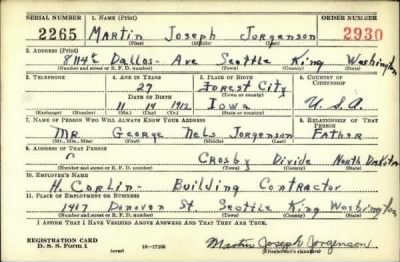 SERIAL NUMBER 1. NAME (Print) ORDER NUMBER
2265 Martin Joseph Jorgenson 2930
(First) (Middle) (Last)
2. ADDRESS (Print)
8114 Dallas Ave Seattle King Washington
(Number and street or R. F. D. number) (Town) (County) (State)
3. TELEPHONE 4. AGE IN YEARS 5. PLACE OF BIRTH 6. COUNTRY OF CITIZENSHIP
27 Forest City
DATE OF BIRTH (Town or county)
11 14 1912 Iowa U.S.A.
(Exchange) (Number) (Mo.) (Day) (Yr.) (State or country)
7. NAME OF PERSON WHO WILL ALWAYS KNOW YOUR ADDRESS 8. RELATIONSHIP OF THAT PERSON
Mr. George Nels Jorgenson Father
(Mr., Mrs., Miss) (First) (Middle) (Last)
9. ADDRESS OF THAT PERSON
Crosby Divide North Dakota
(Number and street or R. F. D. number) (Town) (County) (State)
10. EMPLOYER'S NAME
H. Corlin - Building Contractor
11. PLACE OF EMPLOYMENT OR BUSINESS
1417 Donovan St Seattle King Washington
(Number and street or R. F. D. number) (Town) (County) (State)
I AFFIRM THAT I HAVE VERIFIED ABOVE ANSWERS AND THAT THEY ARE TRUE.
REGISTRATION CARD
D. S. S. Form 1 (over) 16-17105 Martin Joseph Jorgenson
(Registrant's signature)